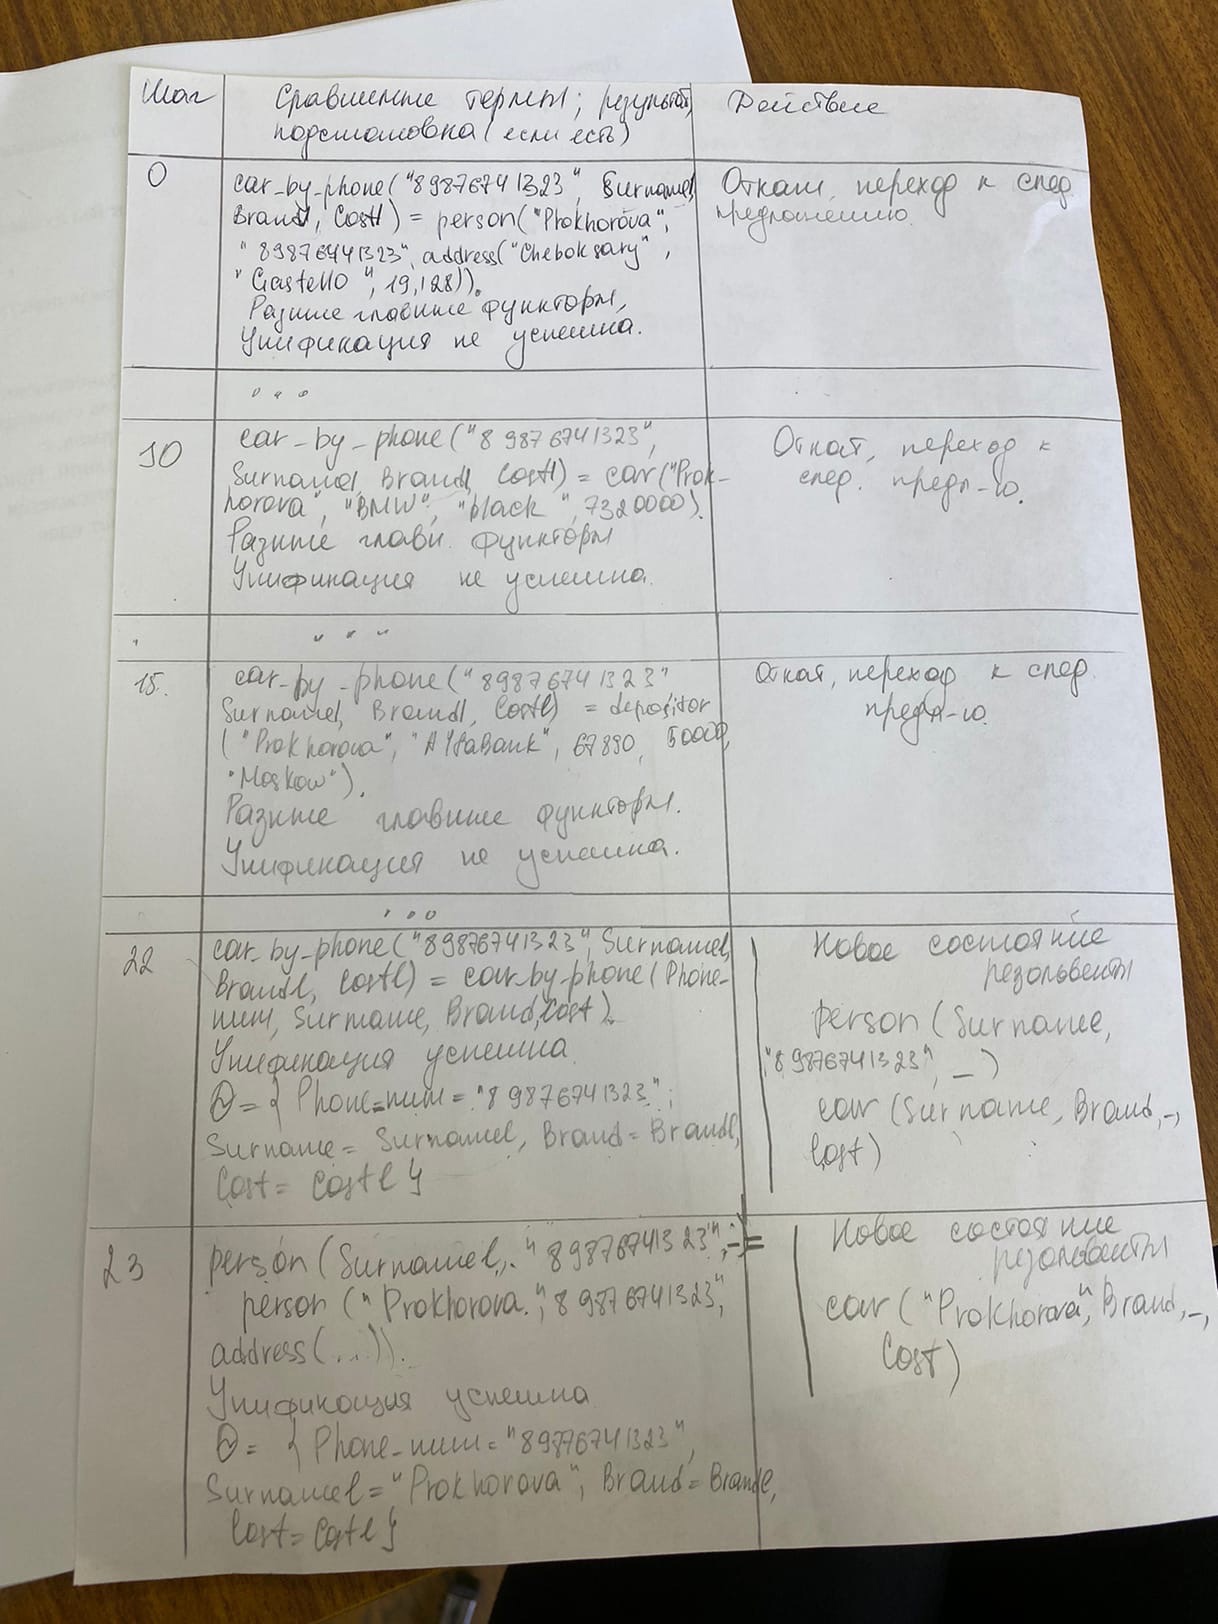 Шаг
Сравниваемые термы; результат,
подстановка (если есть)
Действие
0
car_by_phone("89876741323", Surname1,
Brand1, Cost1) = person("Prokhorova",
"89876741323", address("Cheboksary",
"Gastello", 19,128)).
Разные главные функторы,
Унификация не успешна.
Откат, переход к след.
предложению.
...
10
car_by_phone("89876741323",
Surname1, Brand1, Cost1) = car("Prok-
horova", "BMW", "black", 7320000).
Разные главн. функторы
Унификация не успешна.
Откат, переход к
след. предл-ю.
...
15.
car_by_phone("89876741323"
Surname1, Brand1, Cost1) = depositor
("Prokhorova", "AlfaBank", 67890, 50000,
"Moskow").
Разные главные функторы.
Унификация не успешна.
Откат, переход к след.
предл-ю.
...
22
car_by_phone("89876741323", Surname1,
Brand1, Cost1) = car_by_phone(Phone-
num, Surname, Brand, Cost).
Унификация успешна.
Θ = { Phone_num = "89876741323";
Surname = Surname1, Brand = Brand1,
Cost = Cost1 }
Новое состояние
резольвенты
person (Surname,
"89876741323", _)
car (Surname, Brand, _,
Cost)
23
person (Surname1, "89876741323", _) =
person ("Prokhorova", "89876741323",
address(...)).
Унификация успешна
Θ = { Phone_num = "89876741323",
Surname1 = "Prokhorova", Brand = Brand1,
Cost = Cost1 }
Новое состояние
резольвенты
car ("Prokhorova", Brand, _,
Cost)